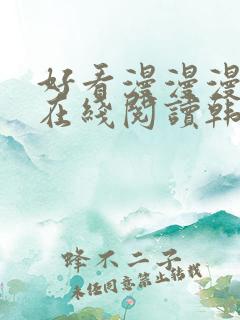 好看漫漫漫
在线阅读韩
蜂不二子
未经同意禁止转载